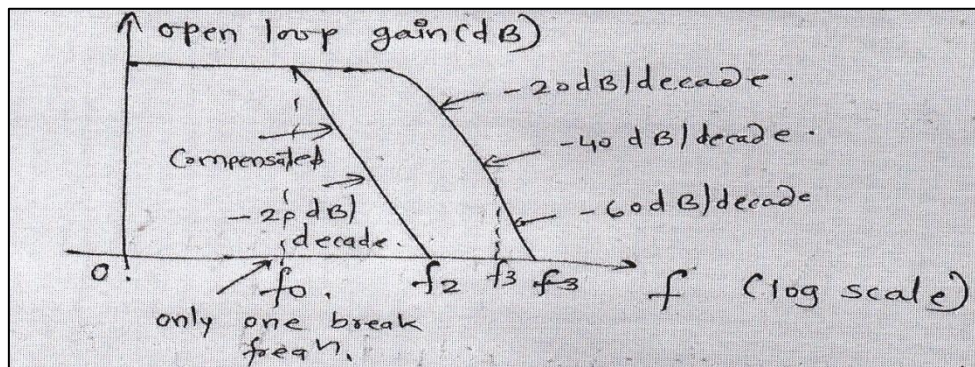 open loop gain(dB)
-20dB/decade.
-40 dB/decade.
Compensated
-20 dB/
decade.
-60dB/decade
0
f0
f2
f3
f3
f (log scale)
only one break
freqn.